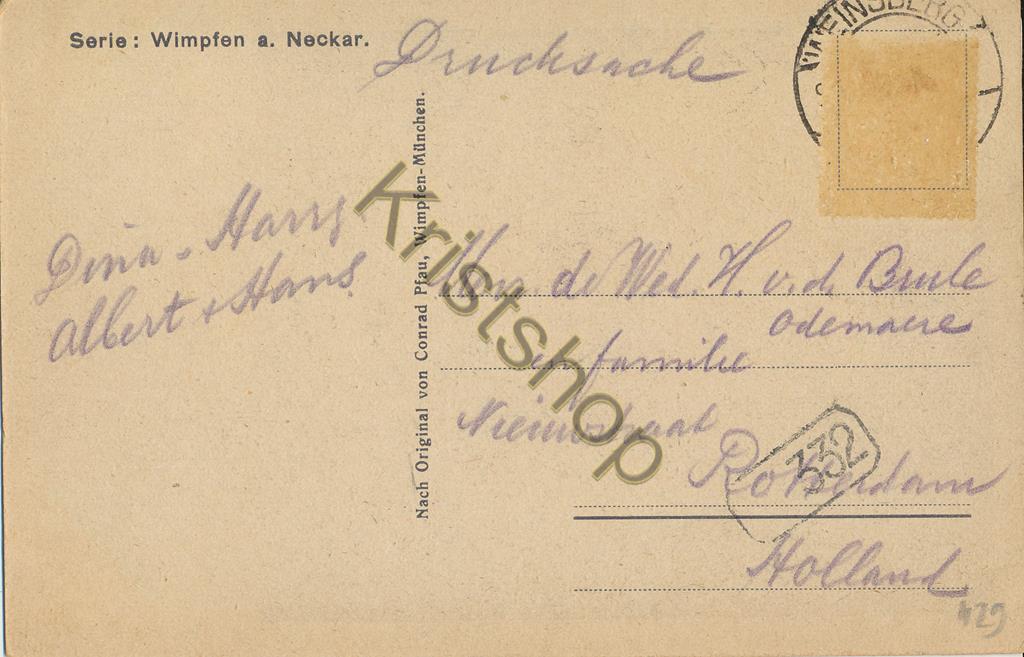 Serie: Wimpfen a. Neckar.
Drucksache
WEINSBERG
Nach Original von Conrad Pfau, Wimpfen-München.
Dina - Harry
Albert + Hans
de Wed. H. v. d. Brule
Odemaere
en familie
Rotterdam
332
Holland
429
Kristshop